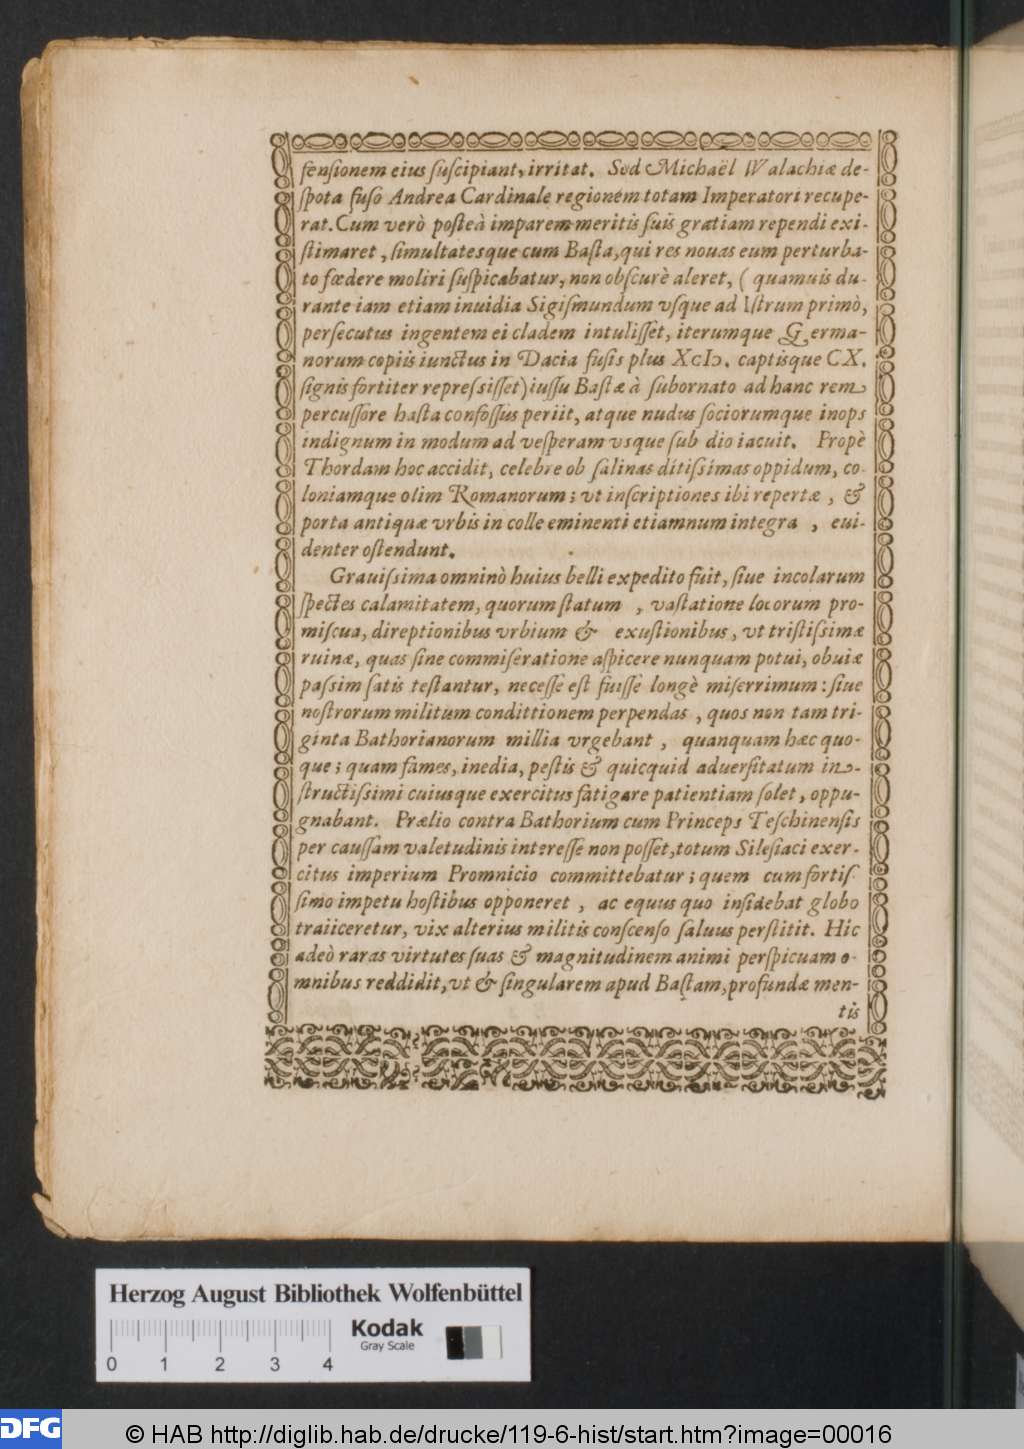 fenſionem eius ſuſcipiant, irritat. Sed Michaël Walachiæ de-
ſpota fuſo Andrea Cardinale regionem totam Imperatori recupe-
rat. Cum verò poſteà imparem meritis ſuis gratiam rependi exi-
ſtimaret, ſimultatesque cum Baſta, qui res nouas eum perturba-
to fœdere moliri ſuſpicabatur, non obſcurè aleret, ( quamuis du-
rante iam etiam inuidia Sigiſmundum vſque ad Iſtrum primò,
perſecutus ingentem ei cladem intuliſſet, iterumque Germa-
norum copiis iunctus in Dacia fuſis plus XcIↄ. captisque CX.
ſignis fortiter repreſsiſſet) iuſſu Baſtæ à ſubornato ad hanc rem
percuſſore haſta confoſſus periit, atque nudus ſociorumque inops
indignum in modum ad veſperam vsque ſub dio iacuit. Propè
Thordam hoc accidit, celebre ob ſalinas ditiſsimas oppidum, co-
loniamque olim Romanorum; vt inſcriptiones ibi repertæ, &
porta antiquæ vrbis in colle eminenti etiamnum integra , eui-
denter oſtendunt.
Grauiſsima omninò huius belli expedito fuit, ſiue incolarum
ſpectes calamitatem, quorum ſtatum , vaſtatione locorum pro-
miſcua, direptionibus vrbium & exuſtionibus, vt triſtiſsimæ
ruinæ, quas ſine commiſeratione aſpicere nunquam potui, obuiæ
paſsim ſatis teſtantur, neceſſe eſt fuiſſe longè miſerrimum: ſiue
noſtrorum militum condittionem perpendas, quos non tam tri-
ginta Bathorianorum millia vrgebant , quanquam hæc quo-
que; quam fames, inedia, peſtis & quicquid aduerſitatum in-
ſtructiſsimi cuiusque exercitus fatigare patientiam ſolet, oppu-
gnabant. Prælio contra Bathorium cum Princeps Teſchinenſis
per cauſſam valetudinis intereſſe non poſſet, totum Sileſiaci exer-
citus imperium Promnicio committebatur; quem cum fortiſ-
ſimo impetu hoſtibus opponeret , ac equus quo inſidebat globo
traiiceretur, vix alterius militis conſcenſo ſaluus perſtitit. Hic
adeò raras virtutes ſuas & magnitudinem animi perſpicuam o-
mnibus reddidit, vt & ſingularem apud Baſtam, profundæ men-
tis
Herzog August Bibliothek Wolfenbüttel
Kodak
Gray Scale
0 1 2 3 4
DFG © HAB http://diglib.hab.de/drucke/119-6-hist/start.htm?image=00016